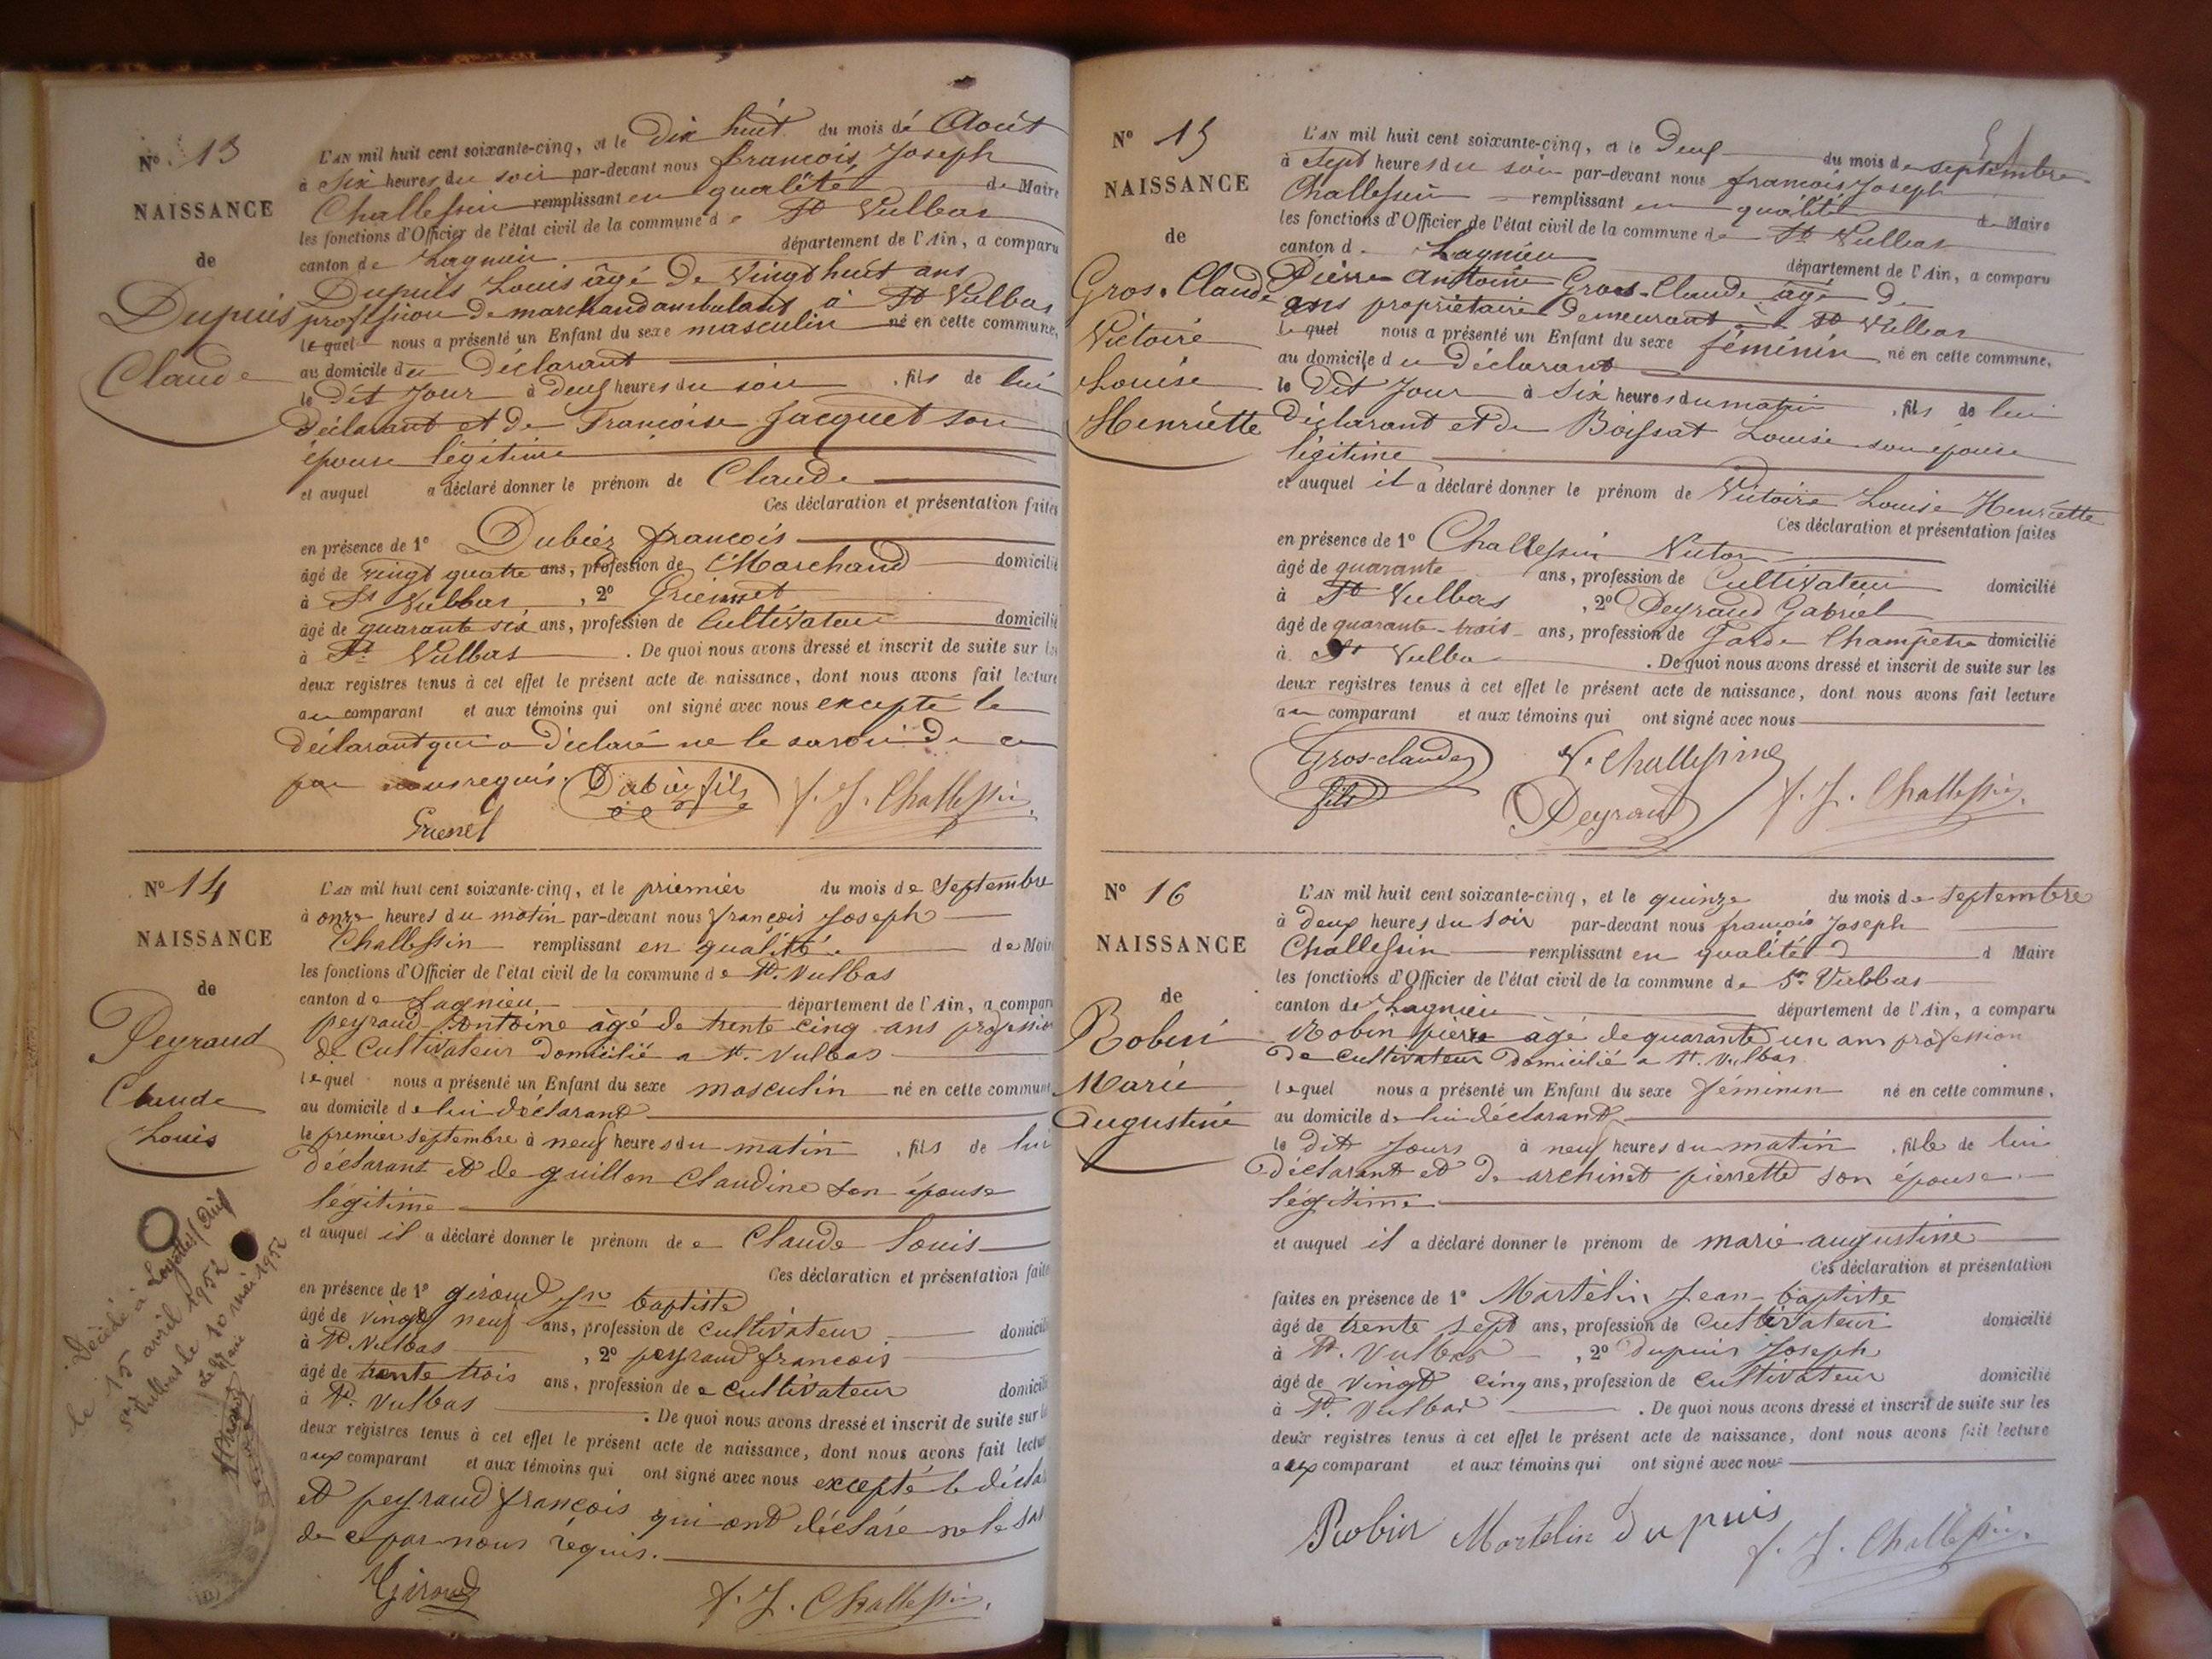 N° 13
NAISSANCE
de
Dupuis
Claude
L'AN mil huit cent soixante-cinq, et le Dix huit du mois de Août
à Six heures du soir par-devant nous francois Joseph
Challessin remplissant en qualité de Maire
les fonctions d'Officier de l'état civil de la commune de St Vulbas
canton de Lagnieu département de l'Ain, a comparu
Dupuis Louis âgé De Vingt huit ans
profession De marchand ambulant à St Vulbas
lequel nous a présenté un Enfant du sexe masculin né en cette commune,
au domicile du Déclarant
le Dit Jour à Deux heures du soir , fils de lui
Déclarant et De Francoise Jacquet son
épouse légitime
et auquel a déclaré donner le prénom de Claude
Ces déclaration et présentation faites
en présence de 1° Dubiez francois
âgé de vingt quatre ans, profession de Marchand domicilié
à St Vulbas , 2°
âgé de quarante six ans, profession de Cultivateur domicilié
à St Vulbas . De quoi nous avons dressé et inscrit de suite sur les
deux registres tenus à cet effet le présent acte de naissance, dont nous avons fait lecture
au comparant et aux témoins qui ont signé avec nous excepté le
Déclarant qui a Déclaré ne le savoir De ce
par nous requis. Dubiez fils f. J. Challessin
N° 14
NAISSANCE
de
Peyraud
Claude
Louis
Décédé à Loyettes (Ain)
le 15 avril 1952
St Vulbas le 10 mai 1952
Le Maire
L'AN mil huit cent soixante-cinq, et le priemier du mois de Septembre
à onze heures du matin par-devant nous françois Joseph
Challessin remplissant en qualité de Maire
les fonctions d'Officier de l'état civil de la commune de St. Vulbas
canton de Lagnieu département de l'Ain, a comparu
peyraud Antoine âgé de trente cinq ans profession
de Cultivateur Domicilié a St. Vulbas
lequel nous a présenté un Enfant du sexe masculin né en cette commune,
au domicile de lui déclarant
le premier septembre à neuf heures du matin , fils de lui
déclarant et de guillon Claudine son épouse
légitime
et auquel il a déclaré donner le prénom de Claude Louis
Ces déclaration et présentation faites
en présence de 1° giroud Jn baptiste
âgé de vingt neuf ans, profession de cultivateur domicilié
à St. Vulbas , 2° peyraud francois
âgé de trente trois ans, profession de cultivateur domicilié
à St. Vulbas . De quoi nous avons dressé et inscrit de suite sur les
deux registres tenus à cet effet le présent acte de naissance, dont nous avons fait lecture
aux comparant et aux témoins qui ont signé avec nous excepté le déclar
et peyraud françois qui ont déclaré ne le sav
de ce par nous requis.
Giroud f. J. Challessin
N° 15
NAISSANCE
de
Gros-Claude
Victoire
Louise
Henriette
L'AN mil huit cent soixante-cinq, et le Deux du mois de septembre
à Sept heures du soir par-devant nous francois Joseph
Challessin remplissant en qualité de Maire
les fonctions d'Officier de l'état civil de la commune de St Vulbas
canton d Lagnieu département de l'Ain, a comparu
Pierre Antoine Gros-Claude âgé de
ans propriétaire Demeurant à St Vulbas
lequel nous a présenté un Enfant du sexe féminin né en cette commune,
au domicile du Déclarant
le Dit Jour à Six heures du matin , fils de lui
Déclarant et De Boissat Louise son épouse
légitime
et auquel il a déclaré donner le prénom de Victoire Louise Henriette
Ces déclaration et présentation faites
en présence de 1° Challessin Victor
âgé de quarante ans, profession de Cultivateur domicilié
à St Vulbas , 2° Peyraud Gabriel
âgé de quarante-trois ans, profession de Garde Champetre domicilié
à St Vulba . De quoi nous avons dressé et inscrit de suite sur les
deux registres tenus à cet effet le présent acte de naissance, dont nous avons fait lecture
au comparant et aux témoins qui ont signé avec nous
Gros-claude fils V. Challessin
Peyraud f. J. Challessin
N° 16
NAISSANCE
de
Robin
Marie
Augustine
L'AN mil huit cent soixante-cinq, et le quinze du mois de septembre
à deux heures du soir par-devant nous françois Joseph
Challessin remplissant en qualité d Maire
les fonctions d'Officier de l'état civil de la commune de St Vulbas
canton de Lagnieu département de l'Ain, a comparu
Robin pierre âgé de quarante un ans profession
De cultivateur Domicilié a St. Vulbas
lequel nous a présenté un Enfant du sexe féminin né en cette commune,
au domicile de lui déclarant
le dit Jours à neuf heures du matin , fille de lui
déclarant et de archinet pierrette son épouse
légitime
et auquel il a déclaré donner le prénom de marie augustine
Ces déclaration et présentation
faites en présence de 1° Martelin Jean-baptiste
âgé de trente sept ans, profession de Cultivateur domicilié
à St. Vulbas , 2° Dupuis Joseph
âgé de vingt cinq ans, profession de cultivateur domicilié
à St. Vulbas . De quoi nous avons dressé et inscrit de suite sur les
deux registres tenus à cet effet le présent acte de naissance, dont nous avons fait lecture
aux comparant et aux témoins qui ont signé avec nous
Robin Martelin Dupuis f. J. Challessin